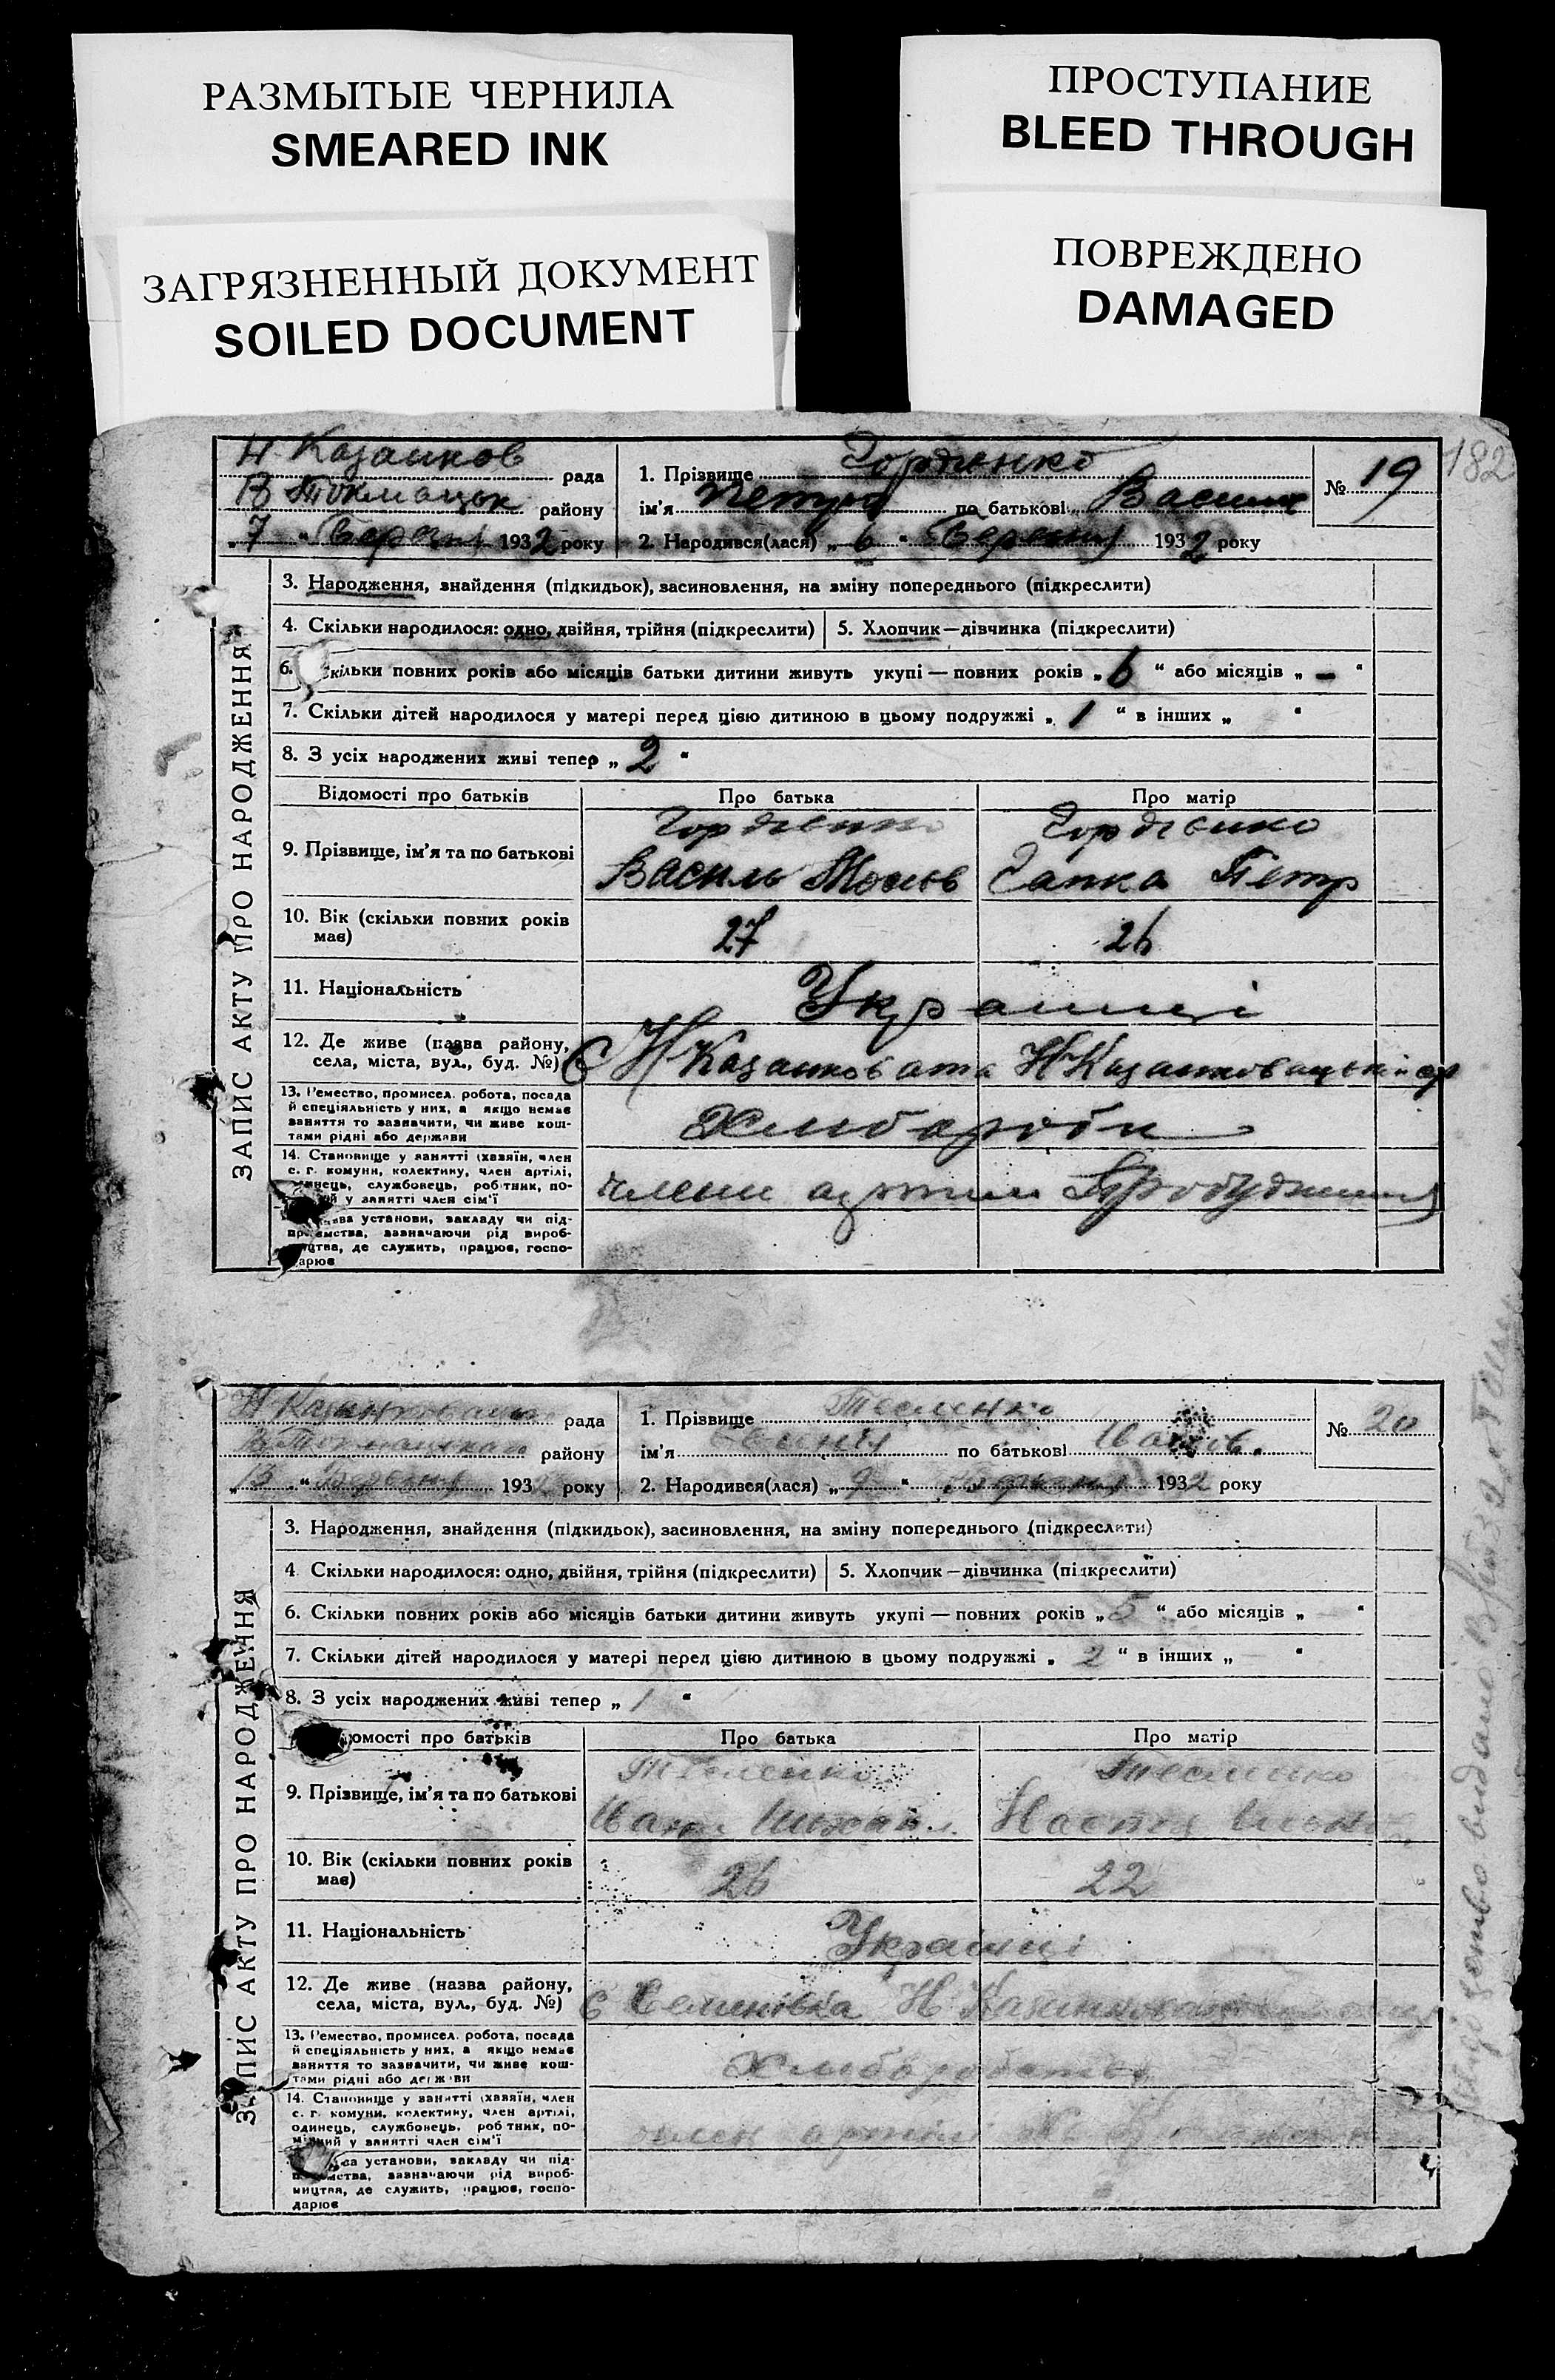 РАЗМЫТЫЕ ЧЕРНИЛА
SMEARED INK
ПРОСТУПАНИЕ
BLEED THROUGH
ЗАГРЯЗНЕННЫЙ ДОКУМЕНТ
SOILED DOCUMENT
ПОВРЕЖДЕНО
DAMAGED
182
Н Казанков рада
В Токмацьк району
„7“ Березня 1932 року
1. Прізвище Гордієнко
ім’я Петро по батькові Васил
№ 19
2. Народився(лася) „6“ Березня 1932 року
ЗАПИС АКТУ ПРО НАРОДЖЕННЯ
3. Народження, знайдення (підкидьок), засиновлення, на зміну попереднього (підкреслити)
4. Скільки народилося: одно, двійня, трійня (підкреслити) 5. Хлопчик—дівчинка (підкреслити)
6. Скільки повних років або місяців батьки дитини живуть укупі — повних років „6“ або місяців „–“
7. Скільки дітей народилося у матері перед цією дитиною в цьому подружжі „1“ в інших „ “
8. З усіх народжених живі тепер „2“
Відомості про батьків Про батька Про матір
9. Прізвище, ім’я та по батькові
Гордієнко Гордієнко
Василь Мосиов Гапка Петр
10. Вік (скільки повних років має) 27 26
11. Національність Українці
12. Де живе (назва району, села, міста, вул., буд. №) С Н Казанковата
13. Ремество, промисел. робота, посада
й спеціяльність у них, а якщо немає
заняття то зазначити, чи живе кош-
тами рідні або держави
Хлібороби
14. Становище у занятті (хазяїн, член
с. г. комуни, колективу, член артілі,
одинець, службовець, робітник, по-
мічний у занятті член сім’ї
члени артіли
назва установи, закладу чи під-
приємства, зазначаючи рід вироб-
ництва, де служить, працює, госпо-
дарює
Н Казанковацьк рада
В Токмацького району
„13“ Березня 1932 року
1. Прізвище Тесленко
ім’я по батькові Іванов.
№ 20
2. Народився(лася) „9“ Березня 1932 року
ЗАПИС АКТУ ПРО НАРОДЖЕННЯ
3. Народження, знайдення (підкидьок), засиновлення, на зміну попереднього (підкреслити)
4. Скільки народилося: одно, двійня, трійня (підкреслити) 5. Хлопчик—дівчинка (підкреслити)
6. Скільки повних років або місяців батьки дитини живуть укупі — повних років „5“ або місяців „ “
7. Скільки дітей народилося у матері перед цією дитиною в цьому подружжі „2“ в інших „ “
8. З усіх народжених живі тепер „1“
Відомості про батьків Про батька Про матір
9. Прізвище, ім’я та по батькові
Тесленко Тесленко
Иван Михайл. Настя
10. Вік (скільки повних років має) 26 22
11. Національність Українці
12. Де живе (назва району, села, міста, вул., буд. №) С Семенівка Н
13. Ремество, промисел. робота, посада
й спеціяльність у них, а якщо немає
заняття то зазначити, чи живе кош-
тами рідні або держави
Хлібороби
14. Становище у занятті (хазяїн, член
с. г. комуни, колективу, член артілі,
одинець, службовець, робітник, по-
мічний у занятті член сім’ї
член артілі
назва установи, закладу чи під-
приємства, зазначаючи рід вироб-
ництва, де служить, працює, госпо-
дарює
видано